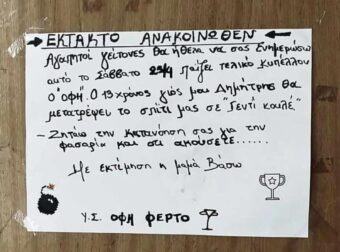 ΕΚΤΑΚΤΟ ΑΝΑΚΟΙΝΩΘΕΝ
Αγαπητοί γείτονες θα ήθελα να σας ενημερώσω
αυτό το Σάββατο 25/4 παίζει τελικό κυπέλλου
ο "ΟΦΗ". Ο 13χρονος γιός μου Δημήτρης θα
μετατρέψει το σπίτι μας σε "Γεντί κουλέ."
- Ζητάω την κατανόηση σας για την
φασαρία και ότι ακούσετε......
Με εκτίμηση η μαμά Βάσω
Υ.Σ. ΟΦΗ ΦΕΡΤΟ